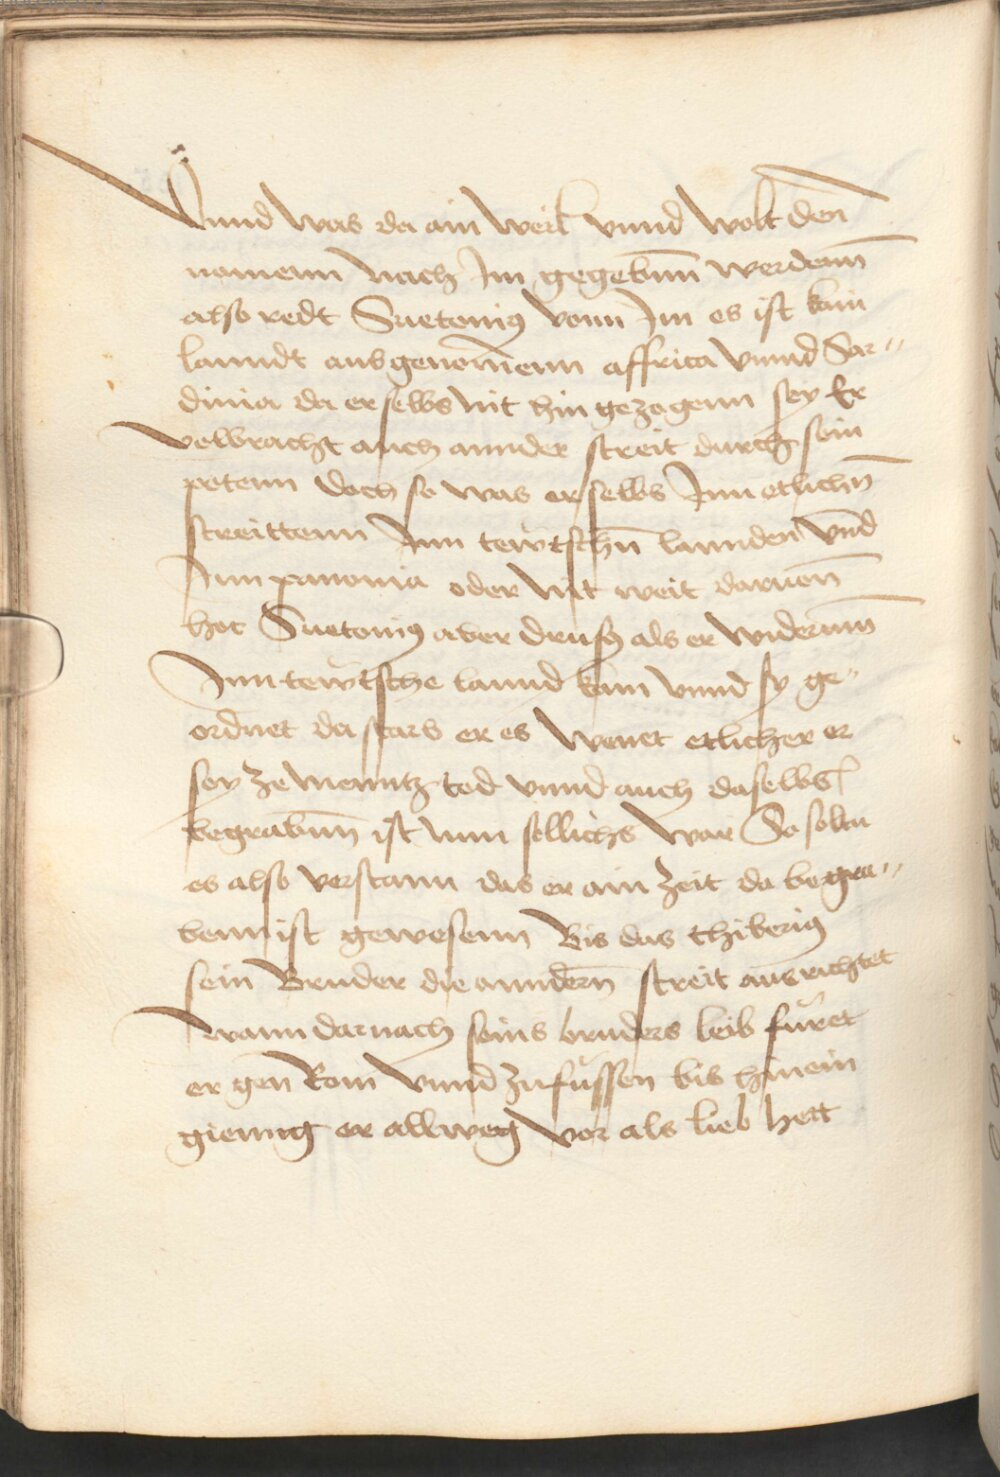 Vnnd was da ain weil vnnd wolt den̄
namenn nach Im gegebnn̄ werdenn̄
also redt Suetonius vonn Im es ist kain
lanndt ausgenom̄enn affrica vnnd Sar-
dinia da er selbs nit hin gezogenn sey Er
volbracht auch annder streit durch sein
potenn doch so was er selbs Inn etlichn̄
streittenn Inn tewtschn̄ lannden vnd̄
Inn panonia oder nit weit daruon̄
hot Suetonius aber drusus als er widerumm̄
Inn tewtsche lannd kam vnnd sy ge-
ordnet da starb er es wenet etlicher er
sey ze menntz tod vnnd auch daselbs
begrabnn̄ ist nun sollichs war So soltu
es also verstann das er ain zeit da begra-
benn ist gewesenn Bis das thiberius
sein Bruder die anndern̄ streit ausrichtet
wann darnach seins bruders leib füret
er gen Rom vnnd zufüssen bis hinein
gienng er allweg vor als lieb hett